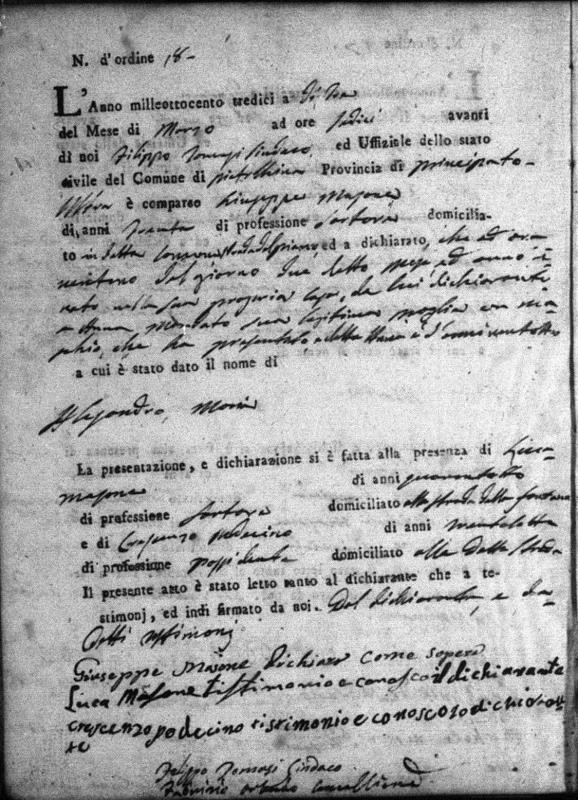 N. d'ordine 18-
L'Anno milleottocento tredici a dì tre
del Mese di Marzo ad ore sedici avanti
di noi Filippo Tomasi Sindaco, ed Uffiziale dello stato
civile del Comune di pietrelcina Provincia di principato-
è comparso Giuseppe Masone
di anni trenta di professione sartore domicilia-
to in detta ed a dichiarato, che ad ore
del giorno due detto mese ed anno è
nato nella sua propria casa, da lui dichiarante
sua legittima moglie un ma-
schio, che ha presentato
a cui è stato dato il nome di
Alesandro, Maria
La presentazione, e dichiarazione si è fatta alla presenza di Luca
Masone di anni quarantotto
di professione sartore domiciliato alla strada della fontana
e di Crescenzo podecino di anni
di professione possidente domiciliato alla detta strada
Il presente atto è stato letto tanto al dichiarante che a te-
stimonj, ed indi firmato da noi. Dal dichiarante, e da
detti testimonj
Giuseppe Masone dichiaro come sopra
Luca Masone tistimonio e conosco il dichiarante
crescenzo podecino tistimonio e conosco
te
Filippo Tomasi Sindaco